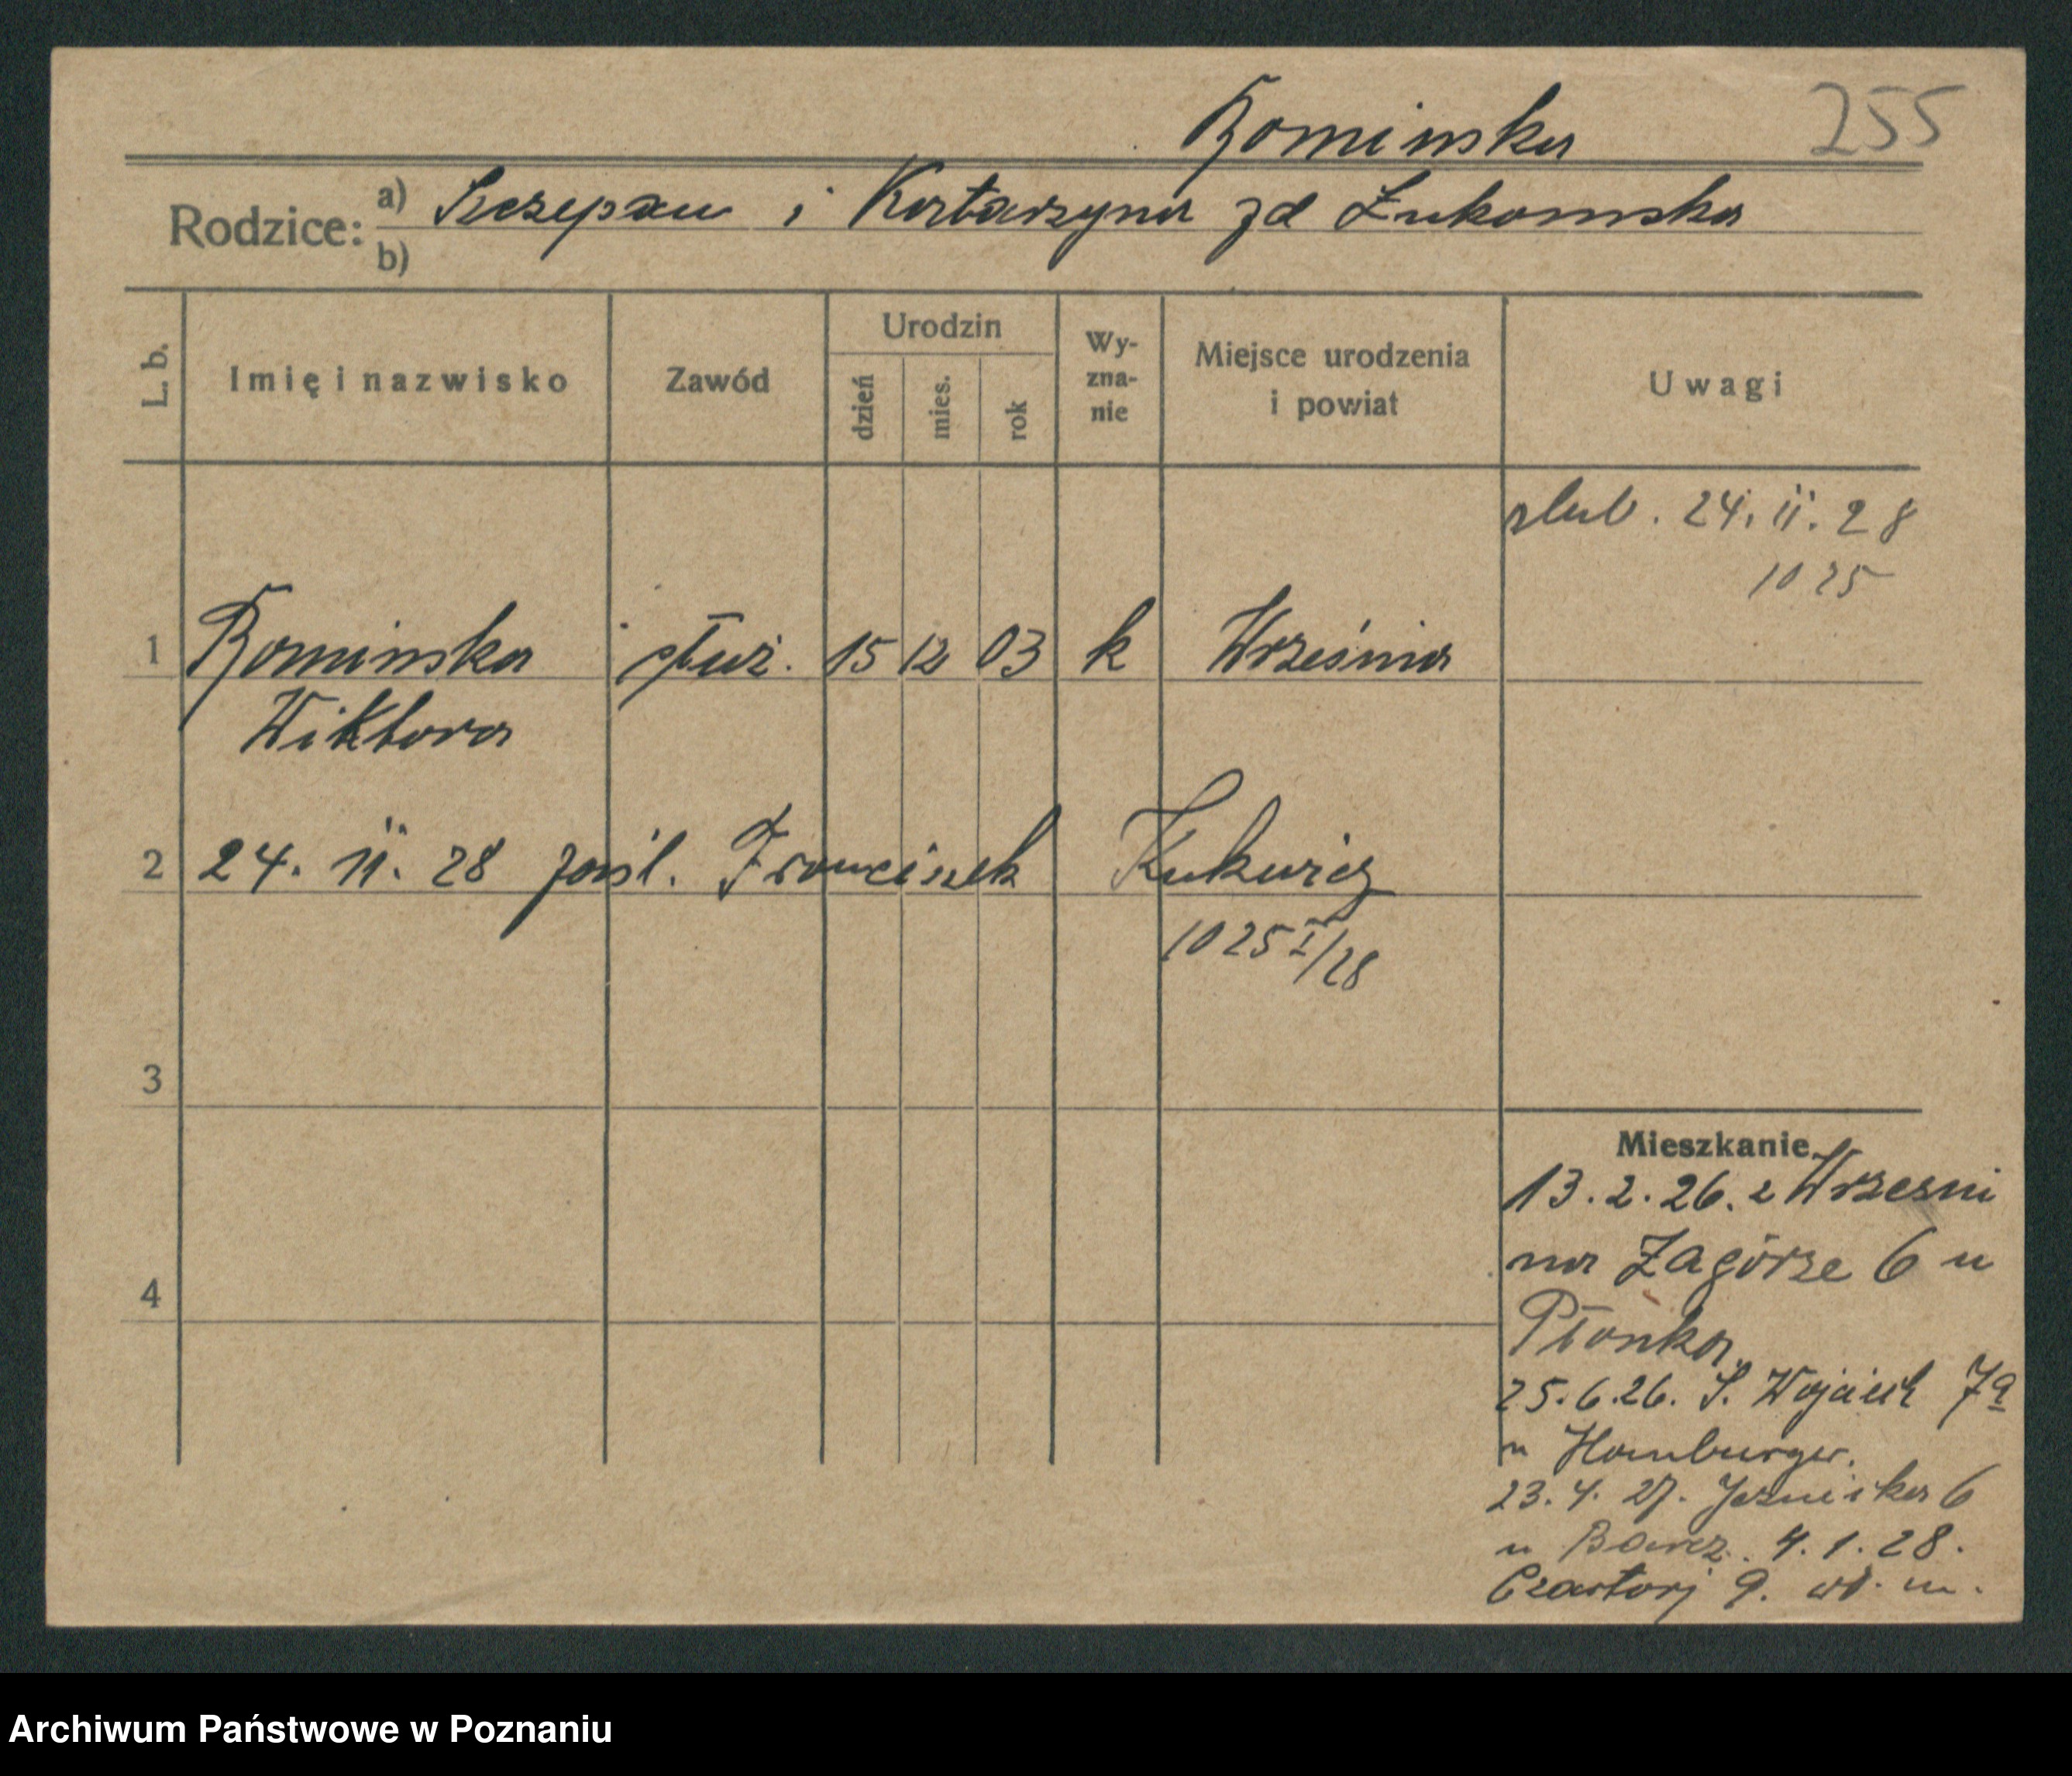 Bominska 255
Rodzice: a) Szczepan i Katarzyna zd Łukomska
b)
L. b. Imię i nazwisko Zawód Urodzin dzień mies. rok Wy-zna-nie Miejsce urodzenia i powiat Uwagi
ślub. 24. 11. 28
1025
1 Bominska służ. 15 12 03 k Września
Wiktora
2 24. 11. 28 zaśl. Franciszek Kukwicz
1025 I/28
3
Mieszkanie
13.2.26. z Wrzesni
na Zagórze 6 u
4
Płonka
25.6.26. Ś. Wojciech 7a
u Homburger.
23.4.27. 6
u Barcz. 4.1.28.
Czartorj 9. wł. m.
Archiwum Państwowe w Poznaniu